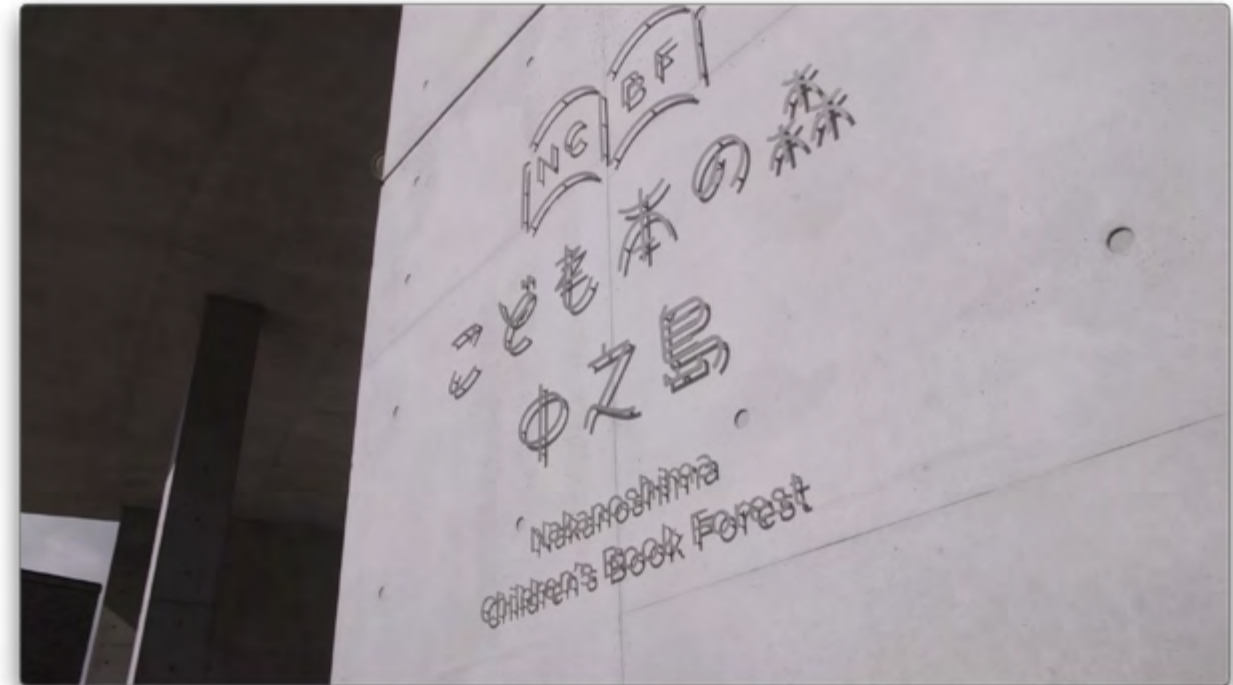 NC BF
こども本の森
中之島
Nakanoshima
Children's Book Forest